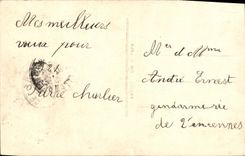 Mes meilleurs
vœux pour
Charlier
Mr et Mme
André Ernest
gendarmerie
de Valenciennes